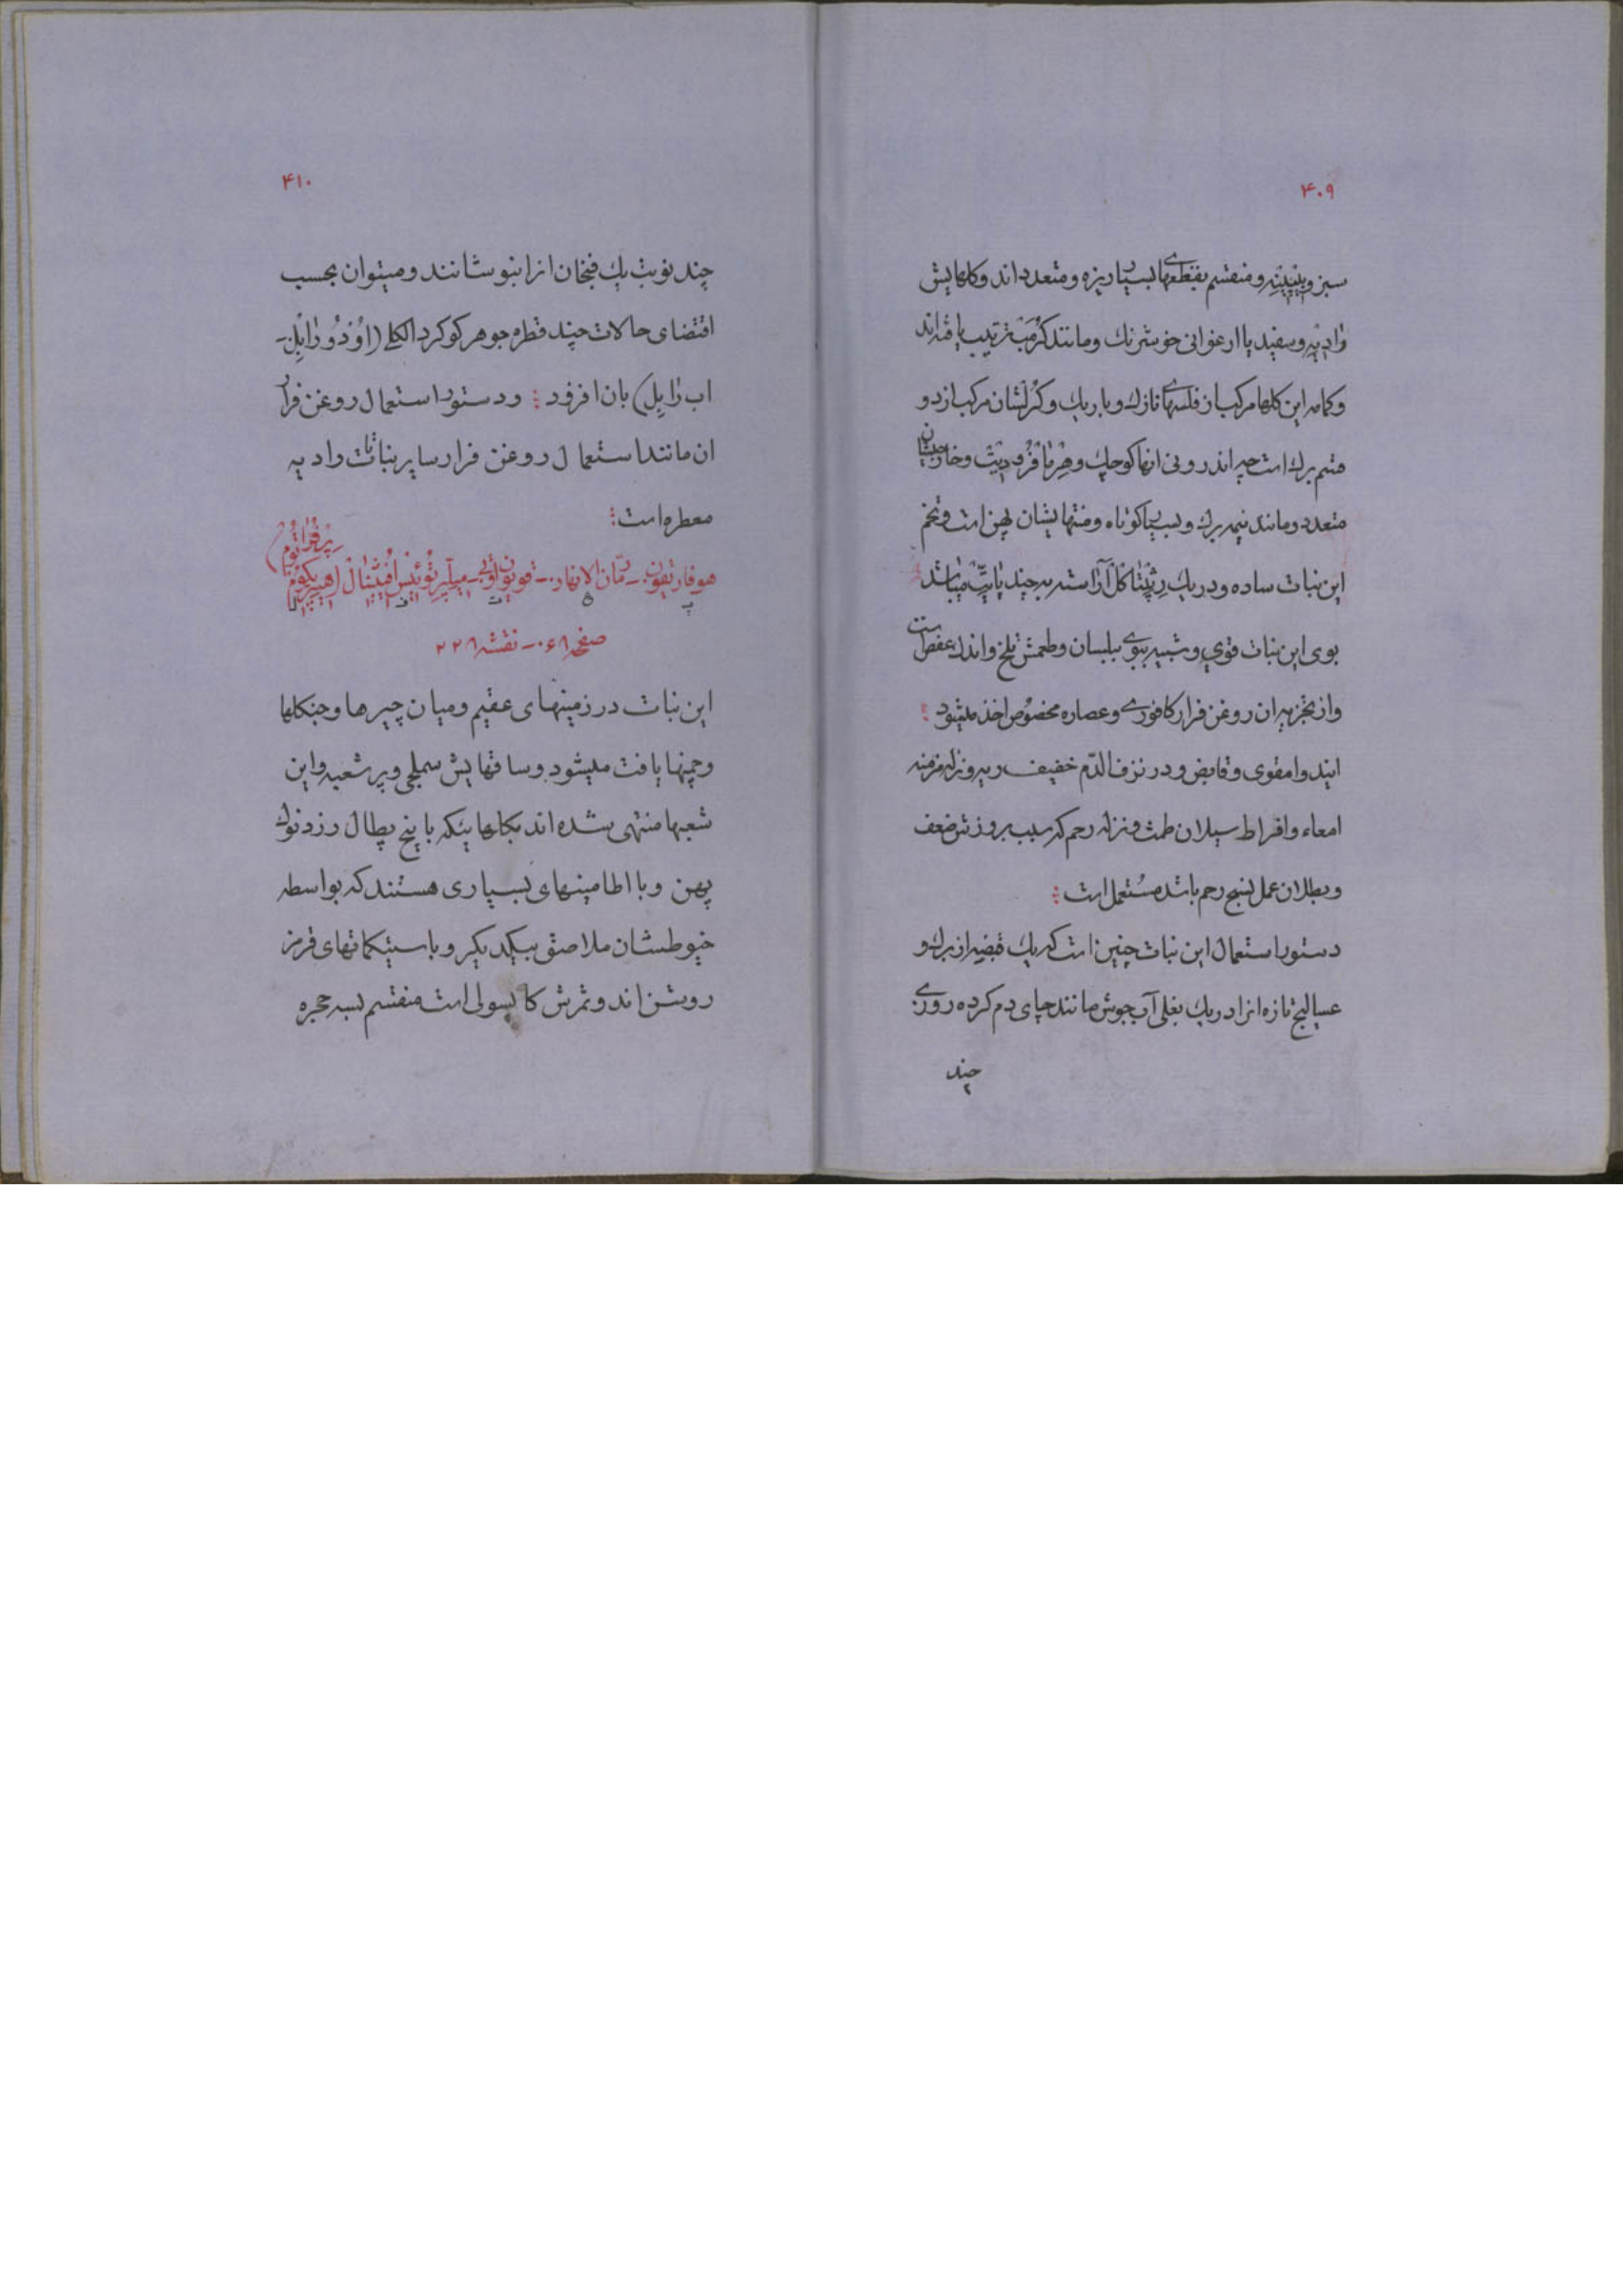 ۴۰۹
سبز و پنینه و منقسم بقطعهای بسیار ریزه و متعدد اند و کلهایش
وادیه و سفید یا ارغوانی خوشرنك و مانند کرمب ترتیب یافته اند
و کمامه این کلها مرکب از فلسهای نازك و باریك و کرلشان مرکب از دو
قسم برك است چه اندرونی انها کوچك و هرمافرودیت و خارجیشان
متعدد و مانند نیمه برك و بسیا کوتاه و منتهایشان پهن است و تخم
این نبات ساده و در یك رثپتاکل آراسته به چند پایت میباشد
بوی این نبات قوی و شبیه ببوی بلسان و طعمش تلخ و اندك عفص است
و از تجزیه ان روغن فرار کافوری و عصاره مخصوص اخذ میشود
ایندوا مقوی و قابض و در نزف الدّم خفیف ریه و نزله مزمنه
امعاء و افراط سیلان طمث و نزله رحم که سبب بروزش ضعف
و بطلان عمل نسج رحم باشد مستعمل است
دستور استعمال این نبات چنین است که یك قبضه از برك و
عسالیج تازه انرا در یك بغلی آب جوش مانند چای دم کرده روزی
چند
۴۱۰
چند نوبت یك فنجان انرا بنوشانند و میتوان بحسب
اقتضای حالات چند قطره جوهر کوکرد الکلی (اوُ دُو رابل ـ
اب رابل) بان افزود و دستور استعمال روغن فرار
ان مانند استعمال روغن فرار سایر نباتات وادیه
معطره است
هوفاریقون ـ رمّان الانهار ـ قویون اوتی ـ میلپرتوئیس افیثینال (هیپریکوم پرفراتوم)
صفحه ۰۶۸ ـ نقشه ۲۲۸
این نبات در زمینهای عقیم و میان چپرها و جنکلها
و چمنها یافت میشود و ساقهایش سملجی و پر شعبه و این
شعبها منتهی شده اند بکلهائیکه با پنج پطال زرد نوك
پهن و با اطامینهای بسیاری هستند که بواسطه
خیوطشان ملاصق بیکدیکر و با ستیکماتهای قرمز
روشن اند و ثمرش کاپسولی است منقسم بسه حجره